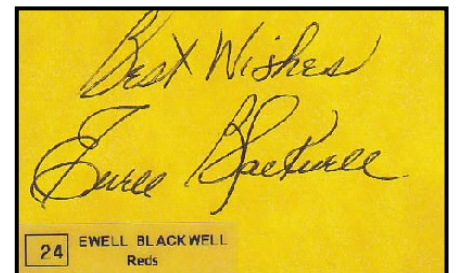 Best Wishes
Ewell Blackwell
24 EWELL BLACKWELL
Reds